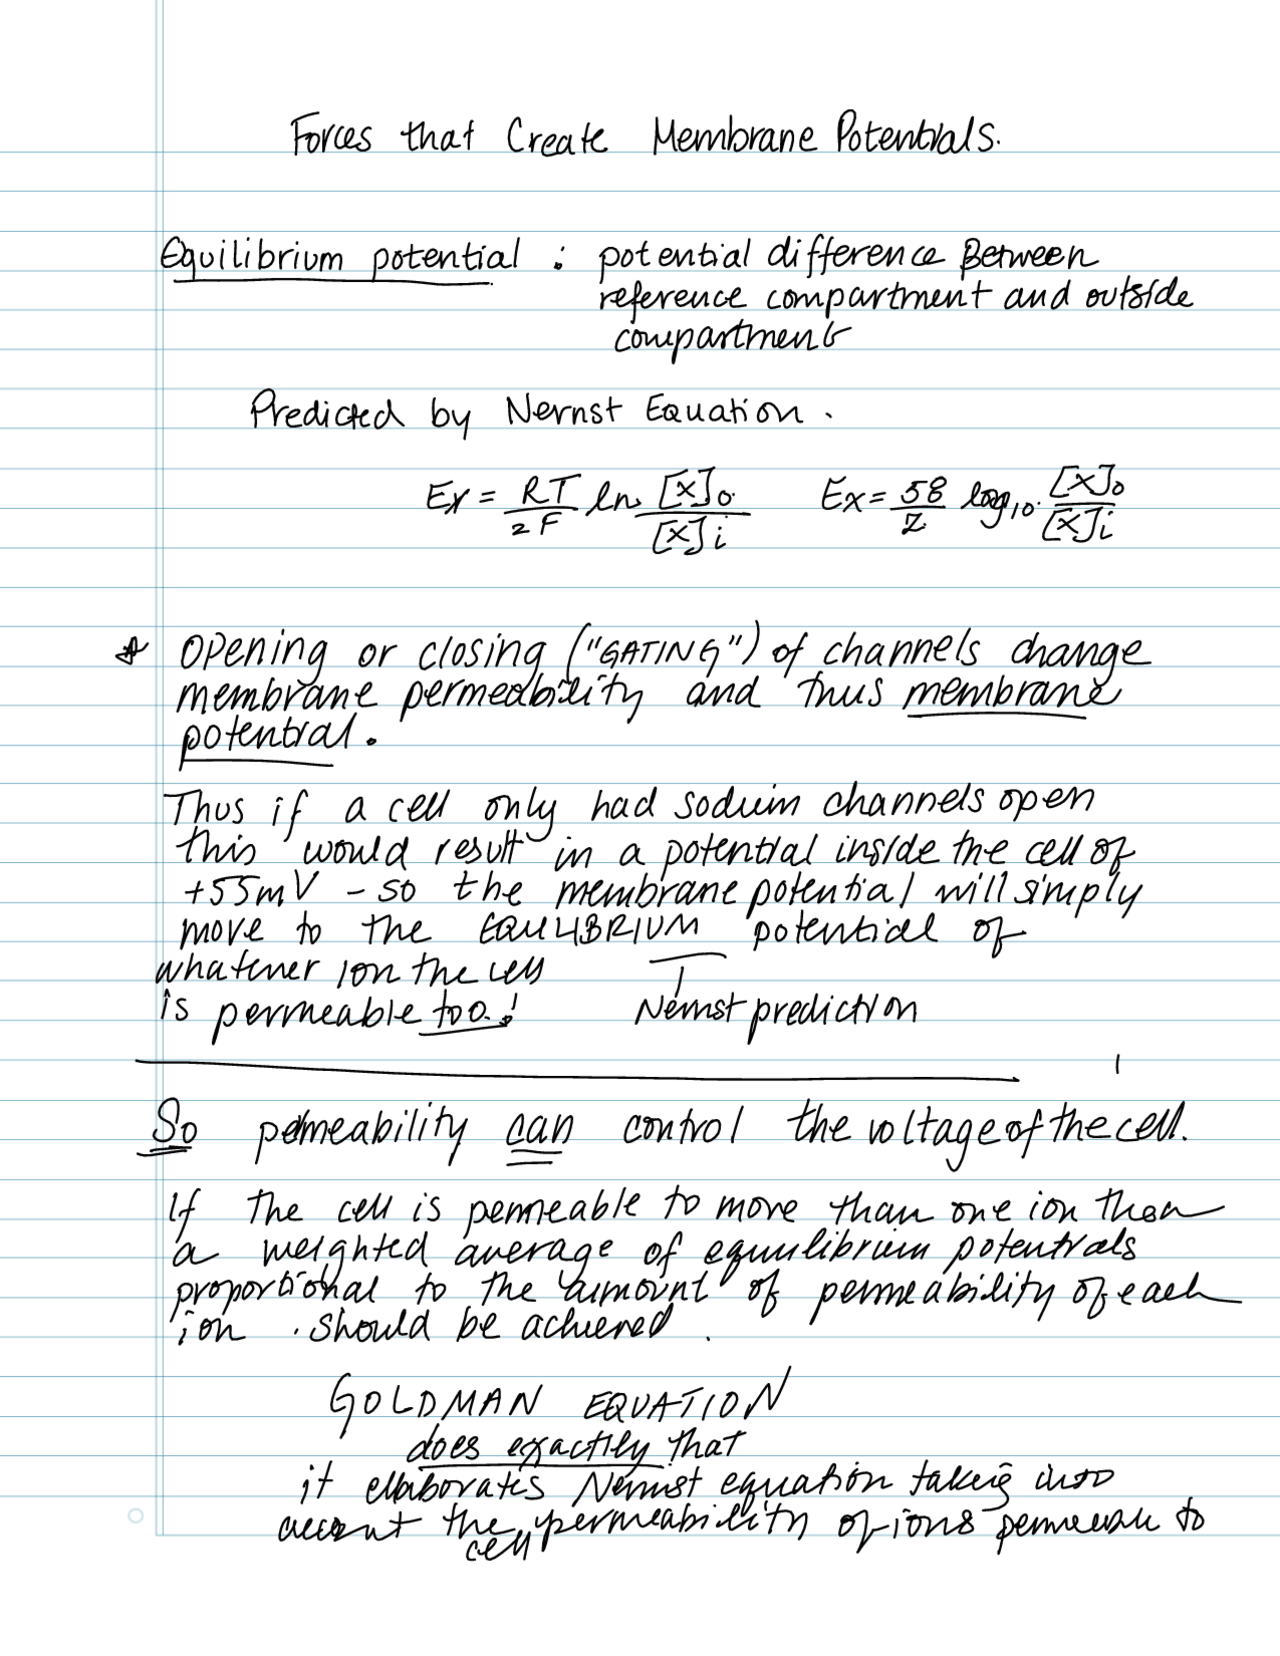 Forces that Create Membrane Potentials.
Equilibrium potential : potential difference Between
reference compartment and outside
compartment
Predicted by Nernst Equation.
Ex = RT/zF ln [X]o/[X]i   Ex = 58/Z log10 [X]o/[X]i
* Opening or closing ("GATING") of channels change
membrane permeability and thus membrane
potential.
Thus if a cell only had sodium channels open
this would result in a potential inside the cell of
+55mV - so the membrane potential will simply
move to the EQUILIBRIUM potential of
whatever ion the cell
is permeable too.! Nernst prediction
So permeability can control the voltage of the cell.
If the cell is permeable to more than one ion then
a weighted average of equilibrium potentials
proportional to the amount of permeability of each
ion . should be achieved .
GOLDMAN EQUATION
does exactly that
it elaborates Nernst equation taking into
account the permeability of ions permeable to
cell